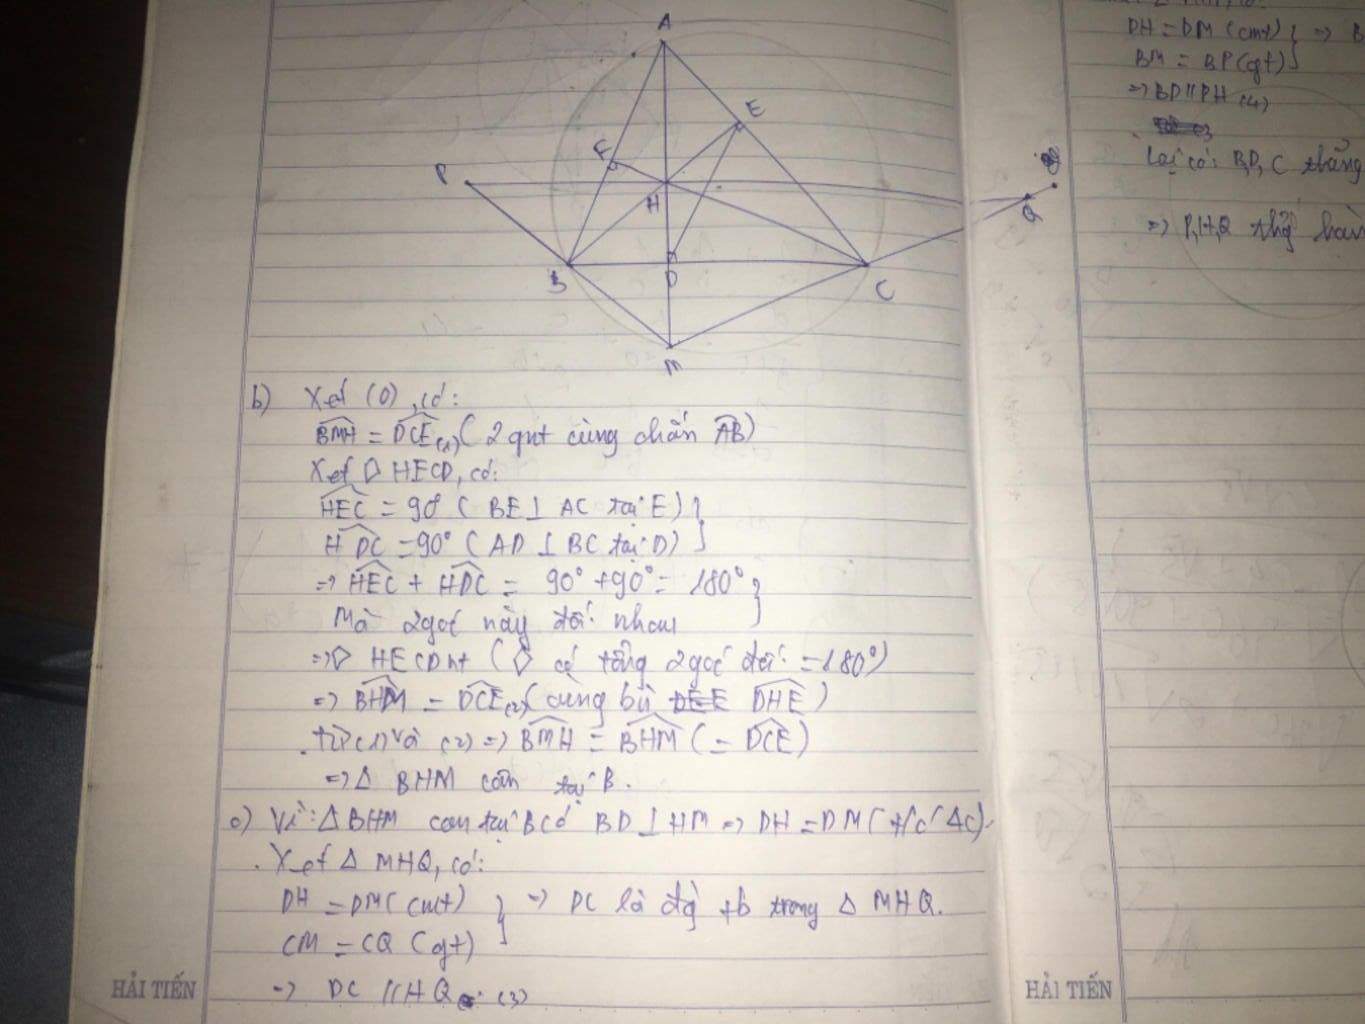 A
E
F
P
H
Q
B
D
C
M
b) Xét (O), có:
BMH = DCE (1) ( 2 gnt cùng chắn AB)
Xét HECD, có:
HEC = 90° ( BE ⊥ AC tại E) }
HDC = 90° ( AD ⊥ BC tại D) }
=> HEC + HDC = 90° + 90° = 180° }
Mà 2 góc này đối nhau
=> HECD nt ( có tổng 2 góc đối = 180°)
=> BHM = DCE (2) (cùng bù DHE )
Từ (1) và (2) => BMH = BHM ( = DCE)
=> Δ BHM cân tại B.
c) Vì: Δ BHM cân tại B có BD ⊥ HM => DH = DM ( t/c Δc)
Xét Δ MHQ, có:
DH = DM ( cmt) } => DC là đg tb trong Δ MHQ.
CM = CQ (gt)
=> DC // HQ (3)
HẢI TIẾN
DH = DM (cmt) } => B
BM = BP (gt) }
=> BD // PH (4)
Lại có: B, D, C thẳng
=> P, H, Q thg hàn
HẢI TIẾN